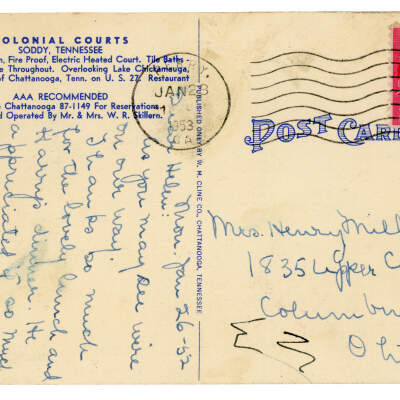 OLONIAL COURTS
SODDY, TENNESSEE
n, Fire Proof, Electric Heated Court. Tile Baths -
e Throughout. Overlooking Lake Chickamauga,
of Chattanooga, Tenn. on U. S. 27. Restaurant
AAA RECOMMENDED
Chattanooga 87-1149 for Reservations.
d Operated By Mr. & Mrs. W. R. Skillern.
JAN 28
1953
GA.
PUBLISHED ONLY BY W. M. CLINE CO., CHATTANOOGA, TENNESSEE
POST CAR
Mon. Jan 26-52
Helen:
As you may see we're
on our way.
Thanks so much
for the lovely lunch and
Harry's dinner. He
appreciated it so muc
Mrs. Henry Mill
1835 Upper C
Columbu
Ohi